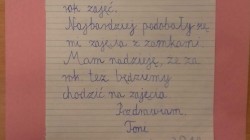 rok zajęć.
Najbardziej podobały się
mi zajęcia z zamkami.
Mam nadzieję, że za
rok też będziemy
chodzić na zajęcia
Pozdrawiam
Toni